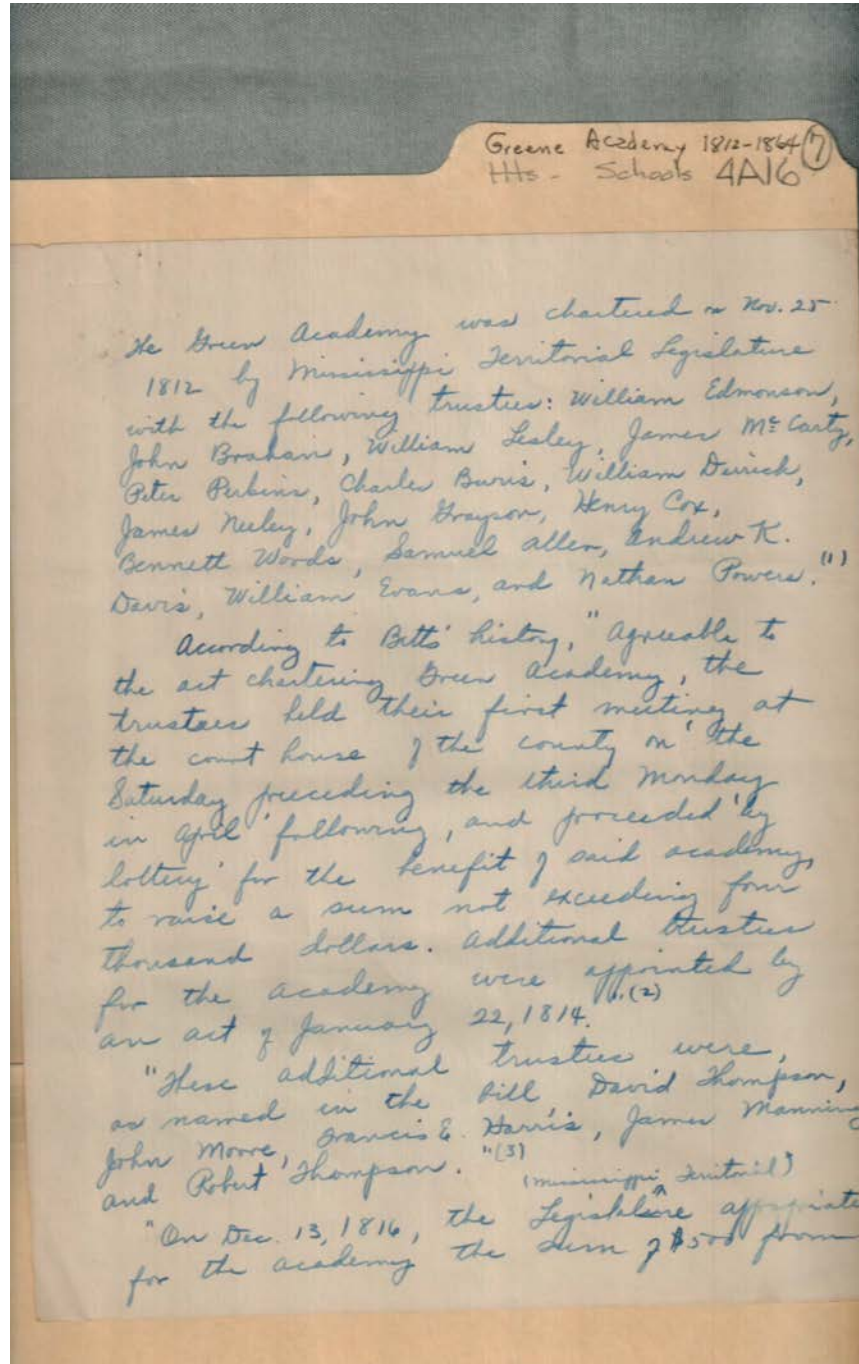 Greene Academy 1812-1864 (7)
Hts - Schools 4A16
The Green Academy was chartered on Nov. 25
1812 by Mississippi Territorial Legislature
with the following trustees: William Edmonson,
John Braham, William Lesley, James McCarty,
Peter Perkins, Charles Buris, William Derrick,
James Neeley, John Grayson, Henry Cox,
Bennett Woods, Samuel Allen, Andrew K.
Davis, William Evans, and Nathan Powers."(1)
According to Betts' history, "Agreeable to
the act chartering Green Academy, the
trustees held their first meeting at
the court house of the county on 'the
Saturday preceding the third Monday
in April' following, and proceeded 'by
lottery' for the benefit of said academy,
to raise a sum not exceeding four
thousand dollars. Additional trustees
for the academy were appointed by
an act of January 22, 1814."(2)
"These additional trustees were,
as named in the bill David Thompson,
John Moore, Francis E. Harris, James Manning
and Robert Thompson."(3)
(Mississippi Territorial)
"On Dec. 13, 1816, the Legislature appropriate
for the academy the sum of $500 from